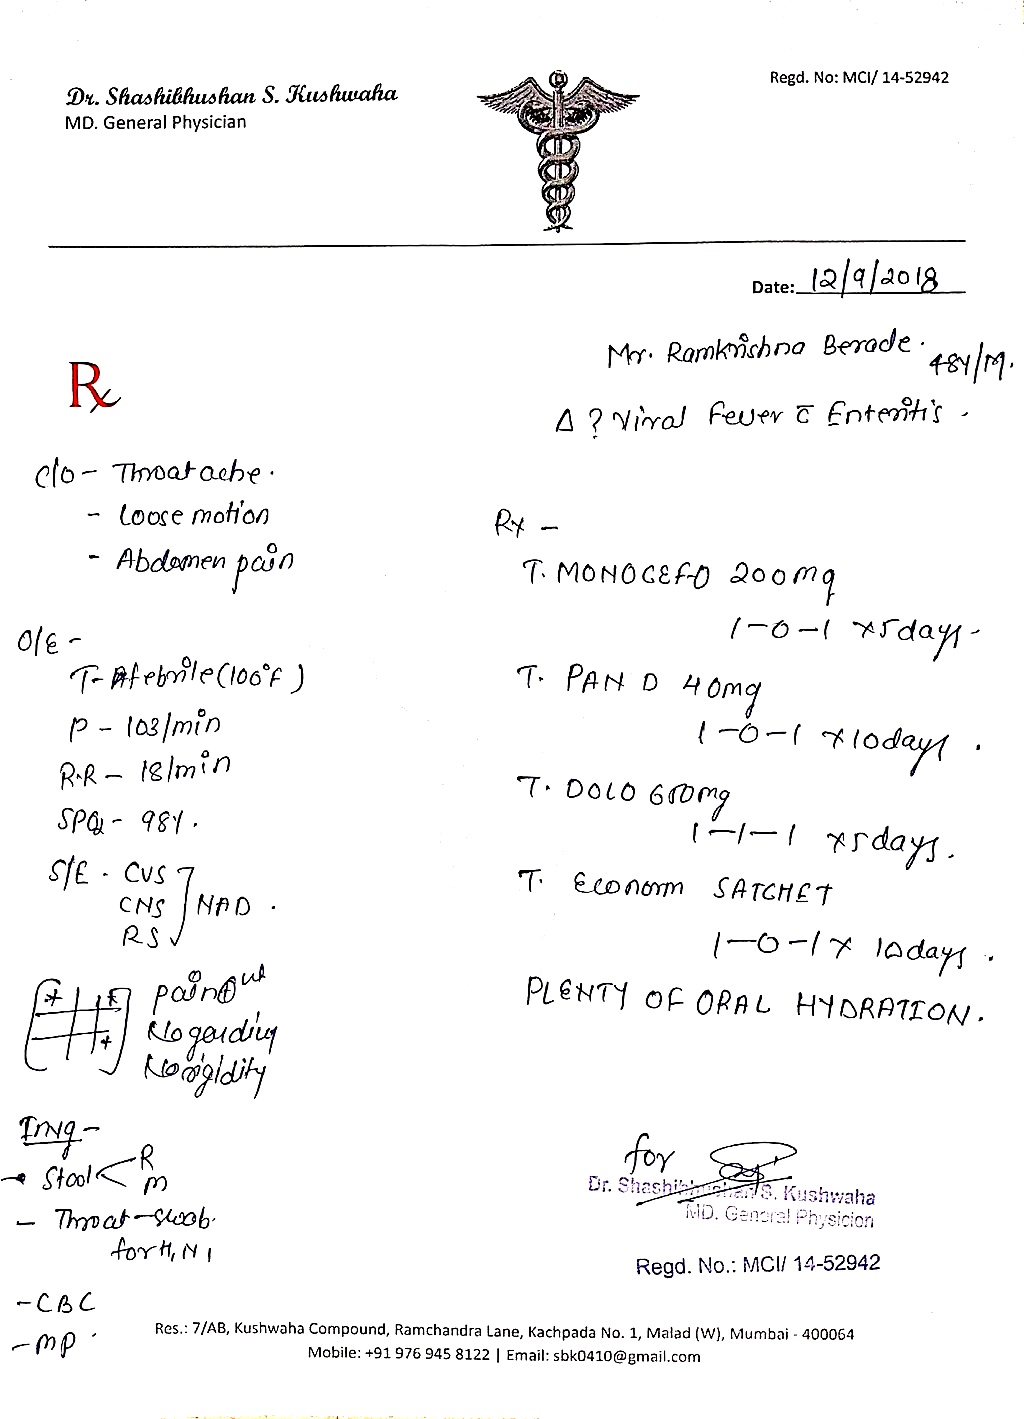 Dr. Shashibhushan S. Kushwaha
MD. General Physician
Regd. No: MCI/ 14-52942
Date: 12/9/2018
Mr. Ramkrishna Berade. 48Y/M.
Rx
Δ ? Viral Fever c̅ Enteritis.
C/O - Throat ache.
- Loose motion
- Abdomen pain
O/E -
T- Afebrile (100°F)
P - 103/min
R.R - 18/min
SPO2 - 98%.
S/E - CVS
CNS NAD.
RS
pain
No garding
No rigidity
Invg -
Stool < R
M
- Throat - swab.
for H1N1
- CBC
- MP
Rx -
T. MONOCEFO 200mg
1-0-1 x5days-
T. PAN D 40mg
1-0-1 x10days.
T. DOLO 650mg
1-1-1 x5days.
T. Econorm SATCHET
1-0-1 x 10days.
PLENTY OF ORAL HYDRATION.
for
Dr. Shashibhushan S. Kushwaha
MD. General Physician
Regd. No.: MCI/ 14-52942
Res.: 7/AB, Kushwaha Compound, Ramchandra Lane, Kachpada No. 1, Malad (W), Mumbai - 400064
Mobile: +91 976 945 8122 | Email: sbk0410@gmail.com